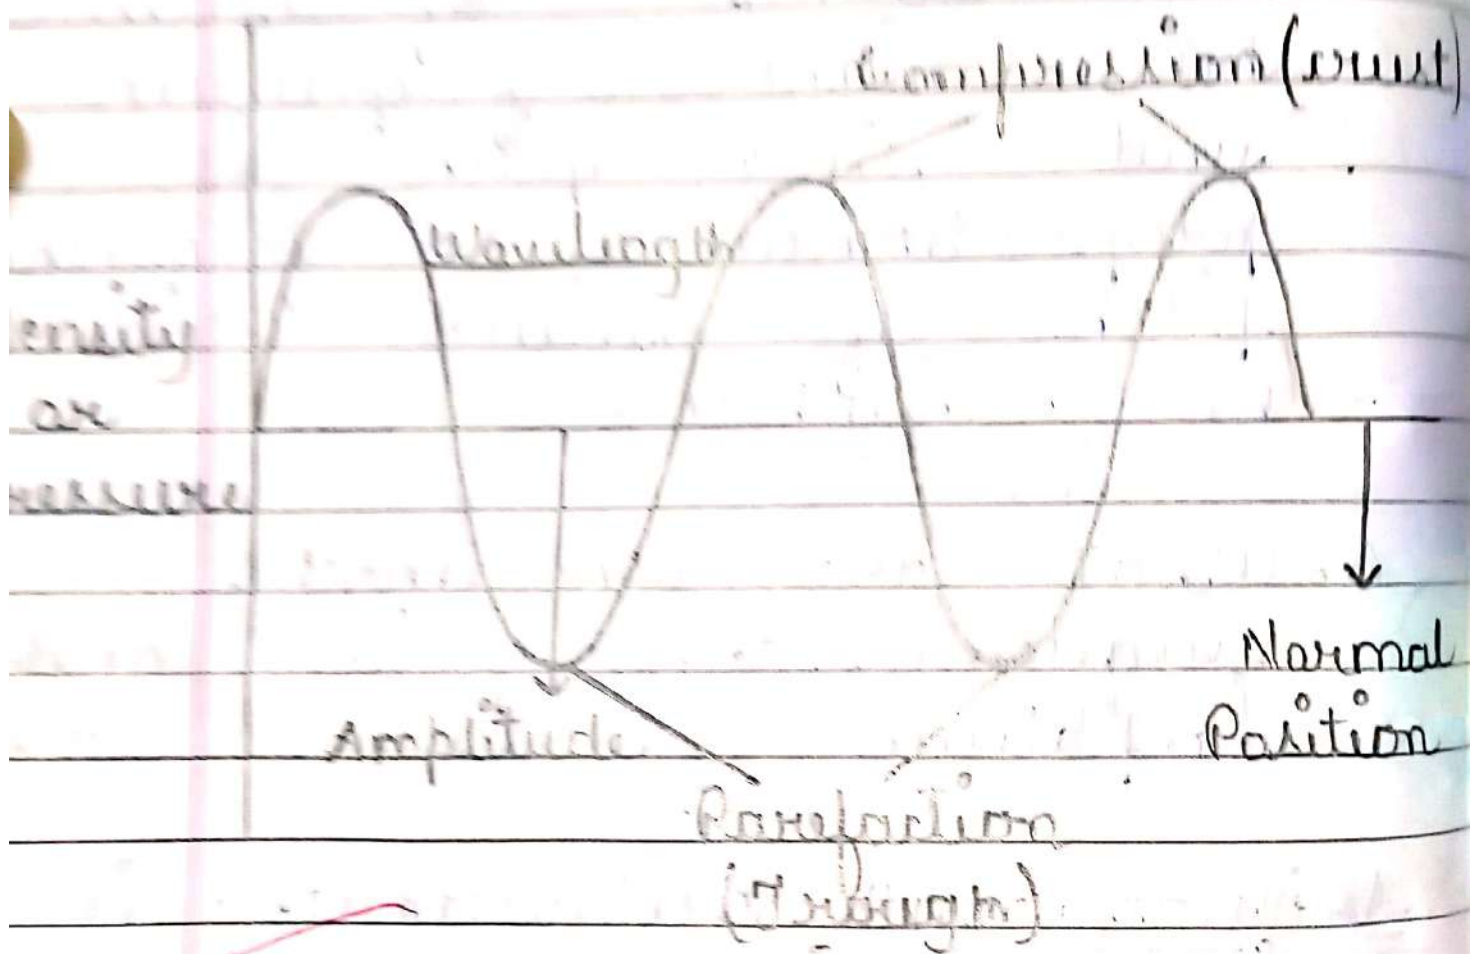 Compression (crust)
Wavelength
ensity
or
ressure
Normal
Amplitude
Position
Rarefaction
(Trough)